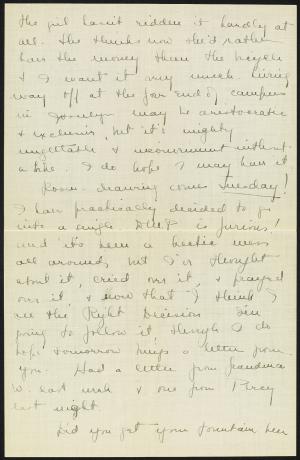 the girl hasn't ridden it hardly at
all. She thinks now she'd rather
have the money than the bicycle
& I want it very much living
way off at the far end of campus
in Hensley may be aristocratic
& exclusive, but it's mighty
unsettable & inconvenient without
a bike. I do hope I may have it
Room-drawing comes Tuesday!
I have practically decided to go
into a single. Dott is furious!
and it's been a hectic mess
all around, but I've thought
about it, cried over it, & prayed
over it, & now that I think I
see the Right Decision I'm
going to follow it though I do
hope tomorrow brings a letter from
you. Had a letter from Grandma
W. last week & one from Percy
last night.
Did you get your fountain pen